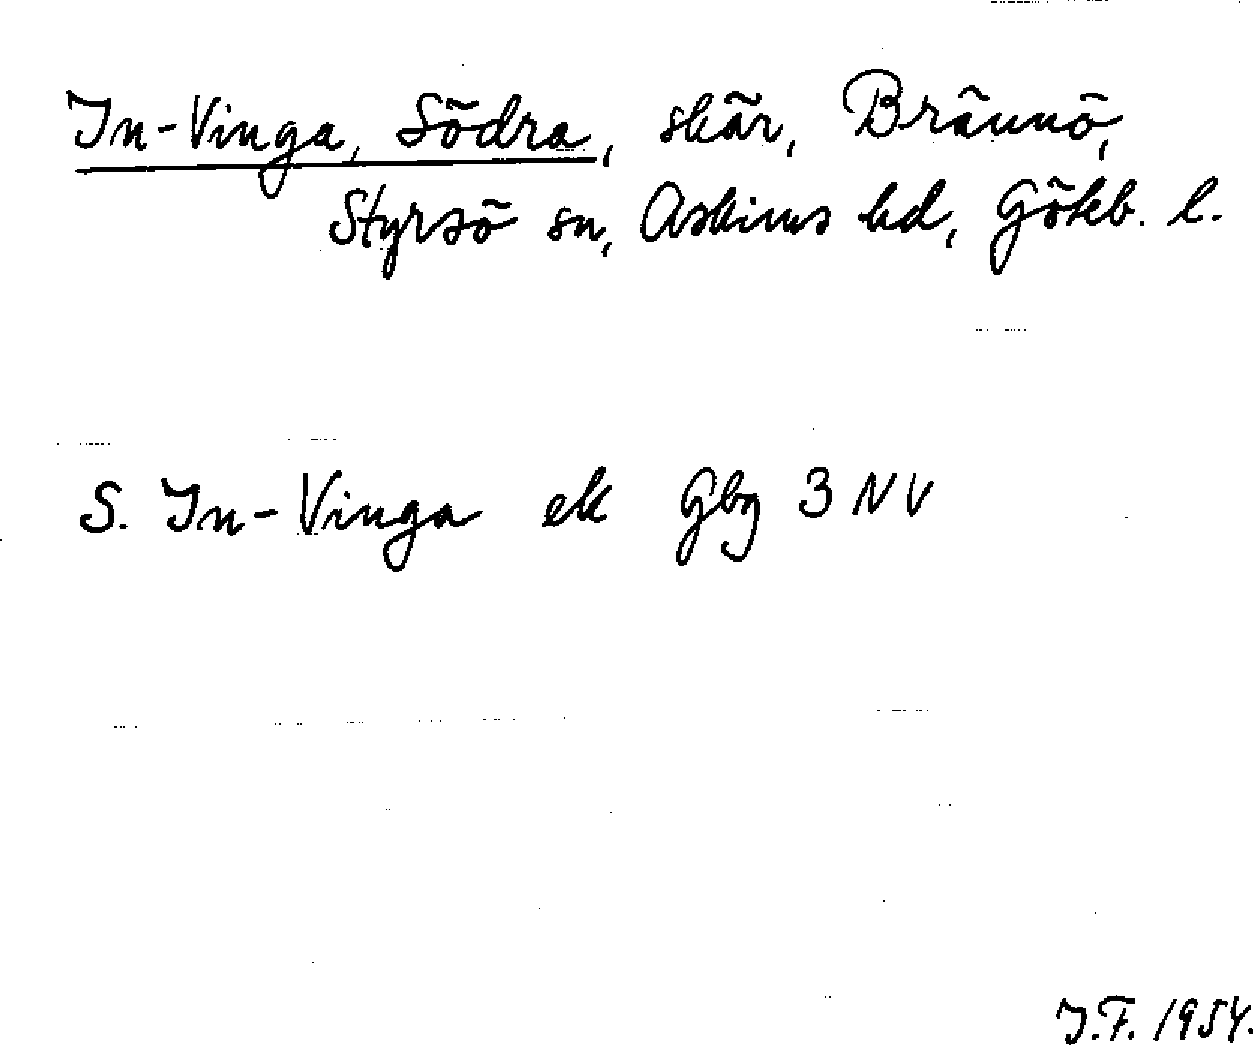 In-Vinga, Södra, skär, Brännö,
Styrsö sn, Askims hd, Göteb. l.
S. In-Vinga ek Gbg 3 NV
J.F. 1954.